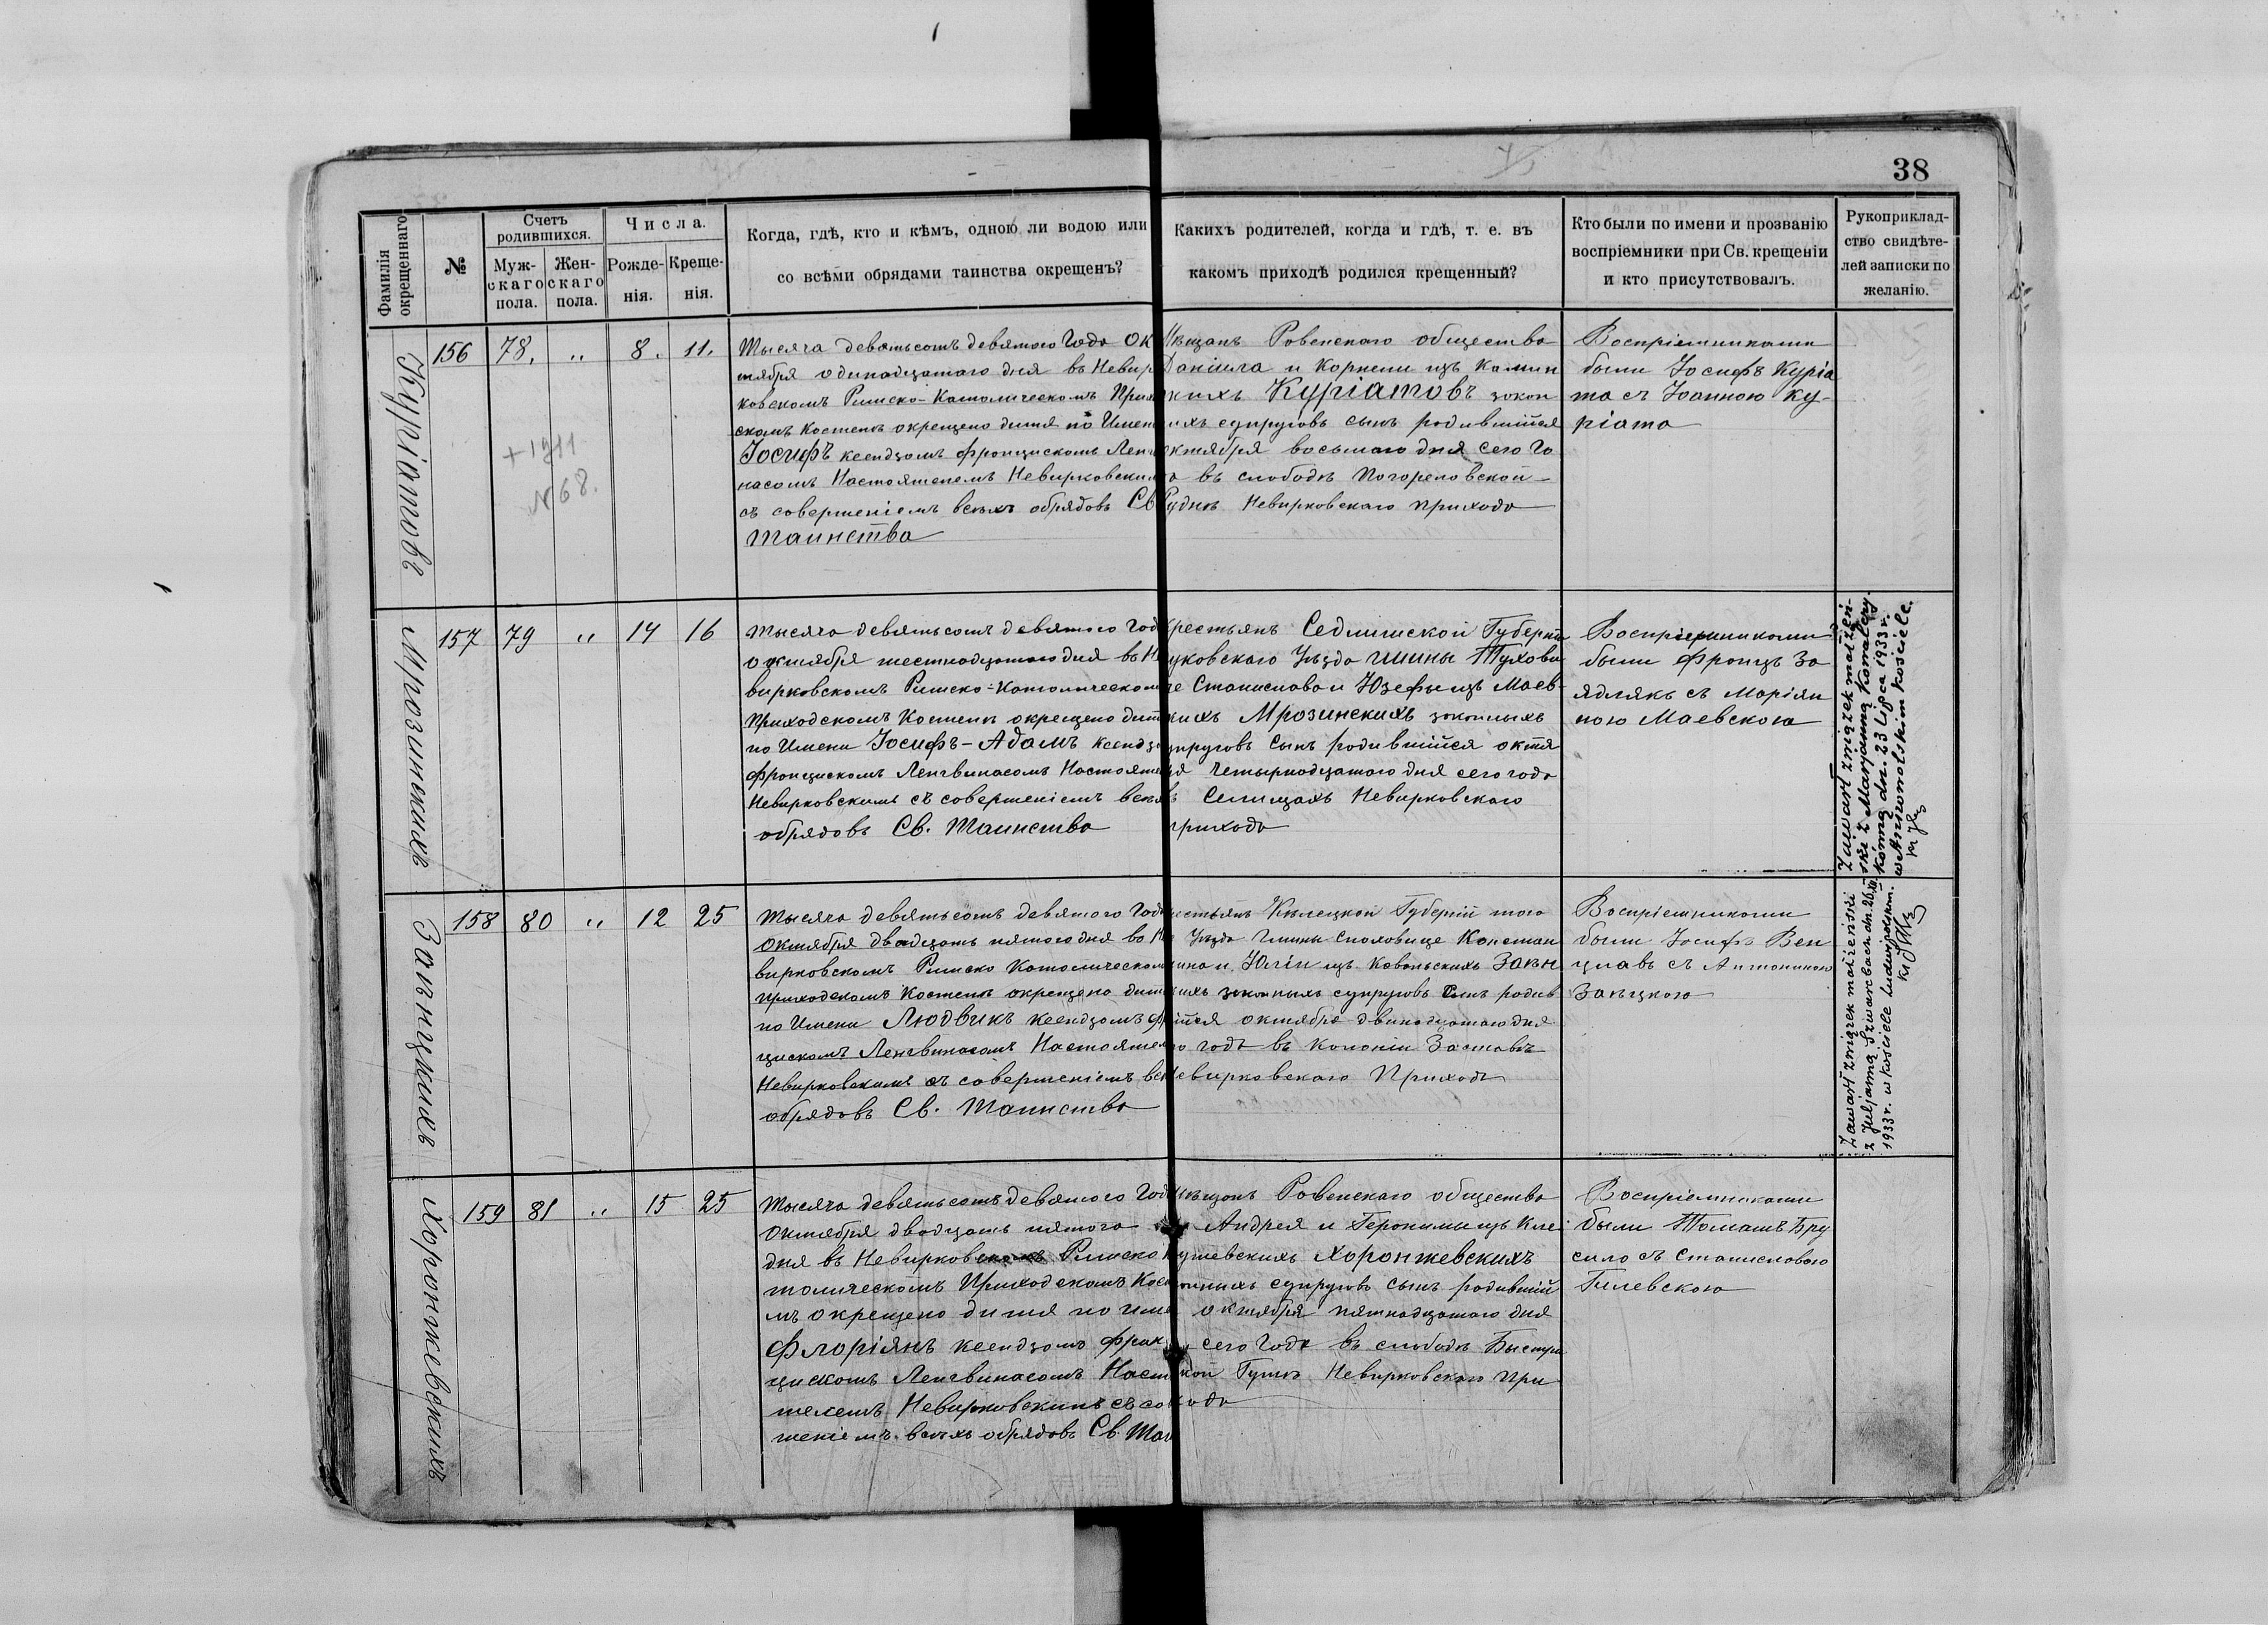 38
Фамилія окрещеннаго
№
Счетъ родившихся.
Мужскаго пола.
Женскаго пола.
Числа.
Рожденія.
Крещенія.
Когда, гдѣ, кто и кѣмъ, одною ли водою или
со всѣми обрядами таинства окрещенъ?
Какихъ родителей, когда и гдѣ, т. е. въ
какомъ приходѣ родился крещенный?
Кто были по имени и прозванію
воспріемники при Св. крещеніи
и кто присутствовалъ.
Рукоприклад-
ство свидѣте-
лей записки по
желанію.
Куріатовъ
156 78. " 8. 11.
+ 1911
N 68.
Тысяча девятьсотъ девятого года Ок
тября одинадцатаго дня въ Невир
ковскомъ Римско-Католическомъ Прих
скомъ Костелѣ окрещено дитя по Имени
Іосифъ ксендзомъ Францискомъ Лен
насомъ Настоятелемъ Невирковским
съ совершеніемъ всѣхъ обрядовъ Св
Таинства
ѣщанъ Ровенскаго общества
Даніила и Корнели изъ Камин
кихъ Куріатовъ закон
ихъ супруговъ сынъ родившійся
ктября восьмаго дня сего го
а въ слободѣ Погореловской
Рудкѣ Невирковскаго прихода
Воспріемниками
были Іосифъ Куріа
та съ Іоанною Ку-
ріата
Мрозинскихъ
157 79 " 14 16
Тысяча девятьсотъ девятого год
октября шестнадцатаго дня въ Н
вирковскомъ Римско-Католическом
Приходскомъ Костелѣ окрещено дит
по Имени Іосифъ-Адамъ ксендз
Францискомъ Ленгвинасомъ Настояте
Невирковскимъ съ совершеніемъ всѣх
обрядовъ Св. Таинства
рестьянъ Седлишской Губерні
уковскаго Уѣзда гмины Тухови
че Станислава и Юзефы изъ Маев-
кихъ Мрозинскихъ законныхъ
упруговъ сынъ родившійся октя
ря четырнадцатаго дня сего года
въ Селищахъ Невирковскаго
прихода
Воспріемниками
были Францъ За
ядлякъ съ Маріян
ною Маевскою
Zawarł związek małżeń-
ski z Marjanną Kowalczy-
kówną dn. 23 lipca 1933 r.
w Annowolskim kościele.
Заѣнцкихъ
158 80 " 12 25
Тысяча девятьсотъ девятого Года
Октября двадцать пятого дня во Не
вирковскомъ Римско Католическом
приходскомъ Костелѣ окрещено дит
по Имени Людвикъ ксендзомъ Фр
цискомъ Ленгвинасомъ Настояте
Невирковскимъ съ совершеніемъ все
обрядовъ Св. Таинства
естьянъ Кѣлецкой Губерніи того
Уѣзда Гмины Сположище Констан
тина и Юліи изъ Ковальскихъ Заѣн
кихъ законныхъ супруговъ сынъ родив
ійся октября двинадцатаго дня
го года въ колоніи Заставѣ
Невирковскаго Прихода
Воспріемниками
были Іосифъ Вен
цлавъ съ Антониною
Заѣнцкою
Zawarł związek małżeński
z Juljanną Szwarcbach dn. 26.XI.
1933 r. w kościele Ludwipolskim.
Хоронжевскихъ
159 81 " 15 25
Тысяча девятьсотъ девятого Год
Октября двадцать пятого
дня въ Невирковскомъ Римско К
толическомъ Приходскомъ Кос
лѣ окрещено дитя по име
Флоріянъ ксендзомъ Фран
цискомъ Ленгвинасомъ Наст
телемъ Невирковскимъ съ со
шеніемъ всѣхъ обрядовъ Св. Таи
ѣщанъ Ровенскаго общества
Андрея и Геронимы изъ Кле
ушевскихъ Хоронжевскихъ
онныхъ супруговъ сынъ родившій
октября пятнадцатаго дня
сего Года въ слободѣ Быстри
кой Гутѣ Невирковскаго при
хода
Воспріемниками
были Томашъ Бру
сило съ Станиславою
Гилевскою